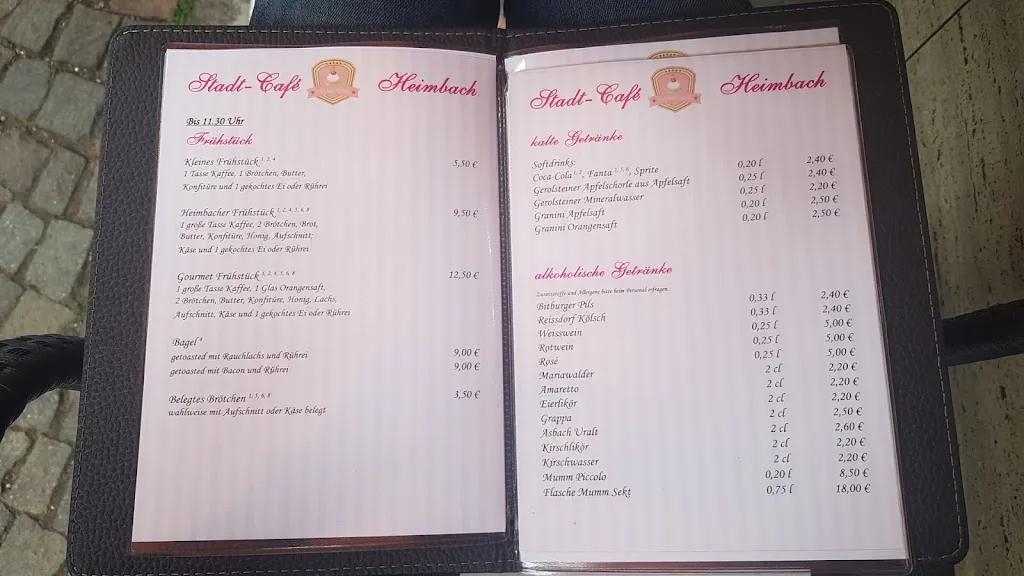 Stadt-Café Heimbach
Bis 11.30 Uhr
Frühstück
Kleines Frühstück 1, 2, 4 5,50 €
1 Tasse Kaffee, 1 Brötchen, Butter,
Konfitüre und 1 gekochtes Ei oder Rührei
Heimbacher Frühstück 1, 2, 4, 5, 6, 8 9,50 €
1 große Tasse Kaffee, 2 Brötchen, Brot,
Butter, Konfitüre, Honig, Aufschnitt;
Käse und 1 gekochtes Ei oder Rührei
Gourmet Frühstück 1, 2, 4, 5, 6, 8 12,50 €
1 große Tasse Kaffee, 1 Glas Orangensaft,
2 Brötchen, Butter, Konfitüre, Honig, Lachs,
Aufschnitt, Käse und 1 gekochtes Ei oder Rührei
Bagel 4
getoasted mit Rauchlachs und Rührei 9,00 €
getoasted mit Bacon und Rührei 9,00 €
Belegtes Brötchen 1, 5, 6, 8 3,50 €
wahlweise mit Aufschnitt oder Käse belegt
Stadt-Café Heimbach
kalte Getränke
Softdrinks:
Coca-Cola 1, 2, Fanta 1, 3, 6, Sprite 0,20 l 2,40 €
Gerolsteiner Apfelschorle aus Apfelsaft 0,25 l 2,40 €
Gerolsteiner Mineralwasser 0,25 l 2,20 €
Granini Apfelsaft 0,20 l 2,50 €
Granini Orangensaft 0,20 l 2,50 €
alkoholische Getränke
Zusatzstoffe und Allergene bitte beim Personal erfragen.
Bitburger Pils 0,33 l 2,40 €
Reissdorf Kölsch 0,33 l 2,40 €
Weisswein 0,25 l 5,00 €
Rotwein 0,25 l 5,00 €
Rosé 0,25 l 5,00 €
Mariawalder 2 cl 2,20 €
Amaretto 2 cl 2,20 €
Eierlikör 2 cl 2,20 €
Grappa 2 cl 2,50 €
Asbach Uralt 2 cl 2,60 €
Kirschlikör 2 cl 2,20 €
Kirschwasser 2 cl 2,20 €
Mumm Piccolo 0,20 l 8,50 €
Flasche Mumm Sekt 0,75 l 18,00 €